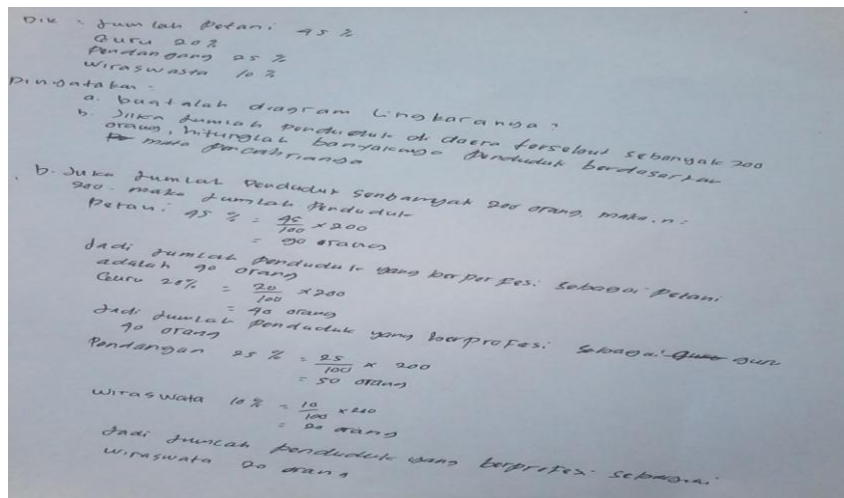 Dik : Jumlah Petani 45 %
Guru 20 %
Pendangang 25 %
Wiraswasta 10 %
Dinyatakan :
a. buatalah diagram Lingkaranya ?
b. Jika Jumlah Penduduk di daera tersebut sebanyak 200
orang, hitunglah banyaknya Penduduk berdasarkan
mata Pencahrianya
b. Jika Jumlah Penduduk Senbanyak 200 orang, maka, n :
200. maka Jumlah Penduduk
Petani 45 % = 45/100 x 200
= 90 orang
Jadi Jumlah Penduduk yang berperfesi sebagai Petani
adalah 90 orang
Guru 20% = 20/100 x 200
= 40 orang
Jadi Jumlah Penduduk yang berprofesi sebagai guru
40 orang
Pendangan 25 % = 25/100 x 200
= 50 orang
Wiraswata 10 % = 10/100 x 200
= 20 orang
Jadi Jumlah Penduduk yang berprofesi sebagai
Wiraswata 20 orang